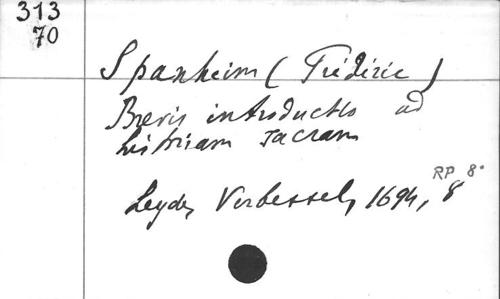 313
70
Spanheim (Frédéric)
Brevis introductio ad
historiam sacram
Leyde, Verbessel, 1694, 8
RP 8°